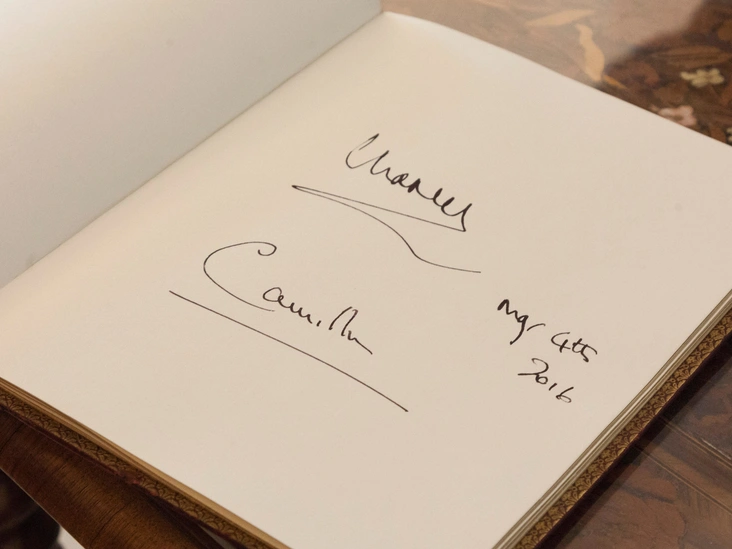 Charles
Camilla
May 4th
2016